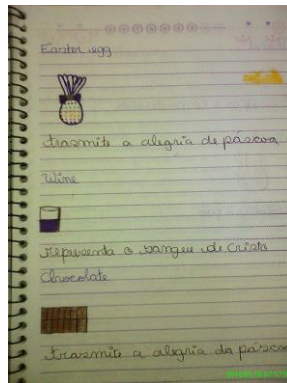 Easter egg
trasmite a alegria de páscoa
Wine
representa o sangue de Cristo
Chocolate
trasmite a alegria da páscoa